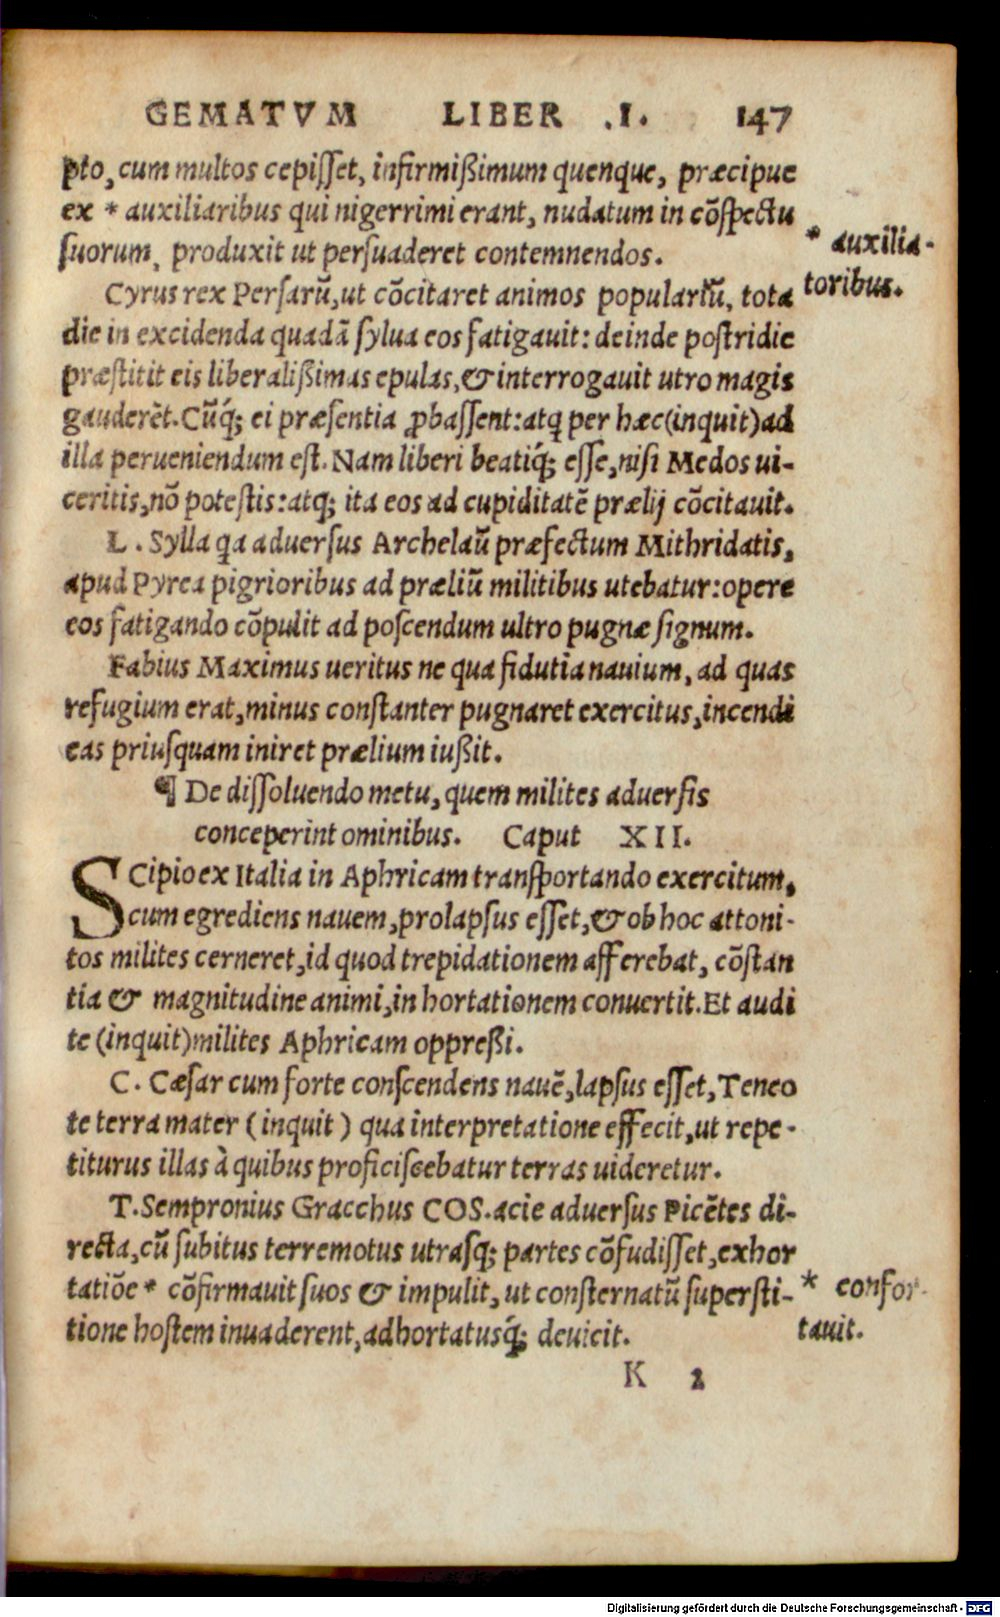 GEMATVM LIBER .I. 147
pto, cum multos cepisset, infirmißimum quenque, præcipue
ex * auxiliaribus qui nigerrimi erant, nudatum in cõspectu
suorum, produxit ut persuaderet contemnendos.
* auxilia-
toribus.
Cyrus rex Persarũ, ut cõcitaret animos popularíũ, tota
die in excidenda quadã sylua eos fatigauit: deinde postridie
præstitit eis liberalißimas epulas, & interrogauit utro magis
gauderẽt. Cũq́; ei præsentia ꝓbassent: atq̃ per hæc (inquit) ad
illa perueniendum est. Nam liberi beatiq́; esse, nisi Medos ui-
ceritis, nõ potestis: atq; ita eos ad cupiditatẽ prælij cõcitauit.
L. Sylla q̃a aduersus Archelaũ præfectum Mithridatis,
apud Pyrea pigrioribus ad præliũ militibus utebatur: opere
eos fatigando cõpulit ad poscendum ultro pugnæ signum.
Fabius Maximus ueritus ne qua fidutia nauium, ad quas
refugium erat, minus constanter pugnaret exercitus, incendi
eas priusquam iniret prælium iußit.
¶ De dissoluendo metu, quem milites aduersis
conceperint ominibus. Caput XII.
SCipio ex Italia in Aphricam transportando exercitum,
cum egrediens nauem, prolapsus esset, & ob hoc attoni-
tos milites cerneret, id quod trepidationem afferebat, cõstan
tia & magnitudine animi, in hortationem conuertit. Et audi
te (inquit) milites Aphricam oppreßi.
C. Cæsar cum forte conscendens nauẽ, lapsus esset, Teneo
te terra mater (inquit) qua interpretatione effecit, ut repe-
titurus illas à quibus proficiscebatur terras uideretur.
T. Sempronius Gracchus COS. acie aduersus Picẽtes di-
recta, cũ subitus terremotus utrasq; partes cõfudisset, exhor
tatiõe * cõfirmauit suos & impulit, ut consternatũ supersti-
tione hostem inuaderent, adhortatusq́; deuicit.
* confor-
tauit.
K 2
Digitalisierung gefördert durch die Deutsche Forschungsgemeinschaft - DFG